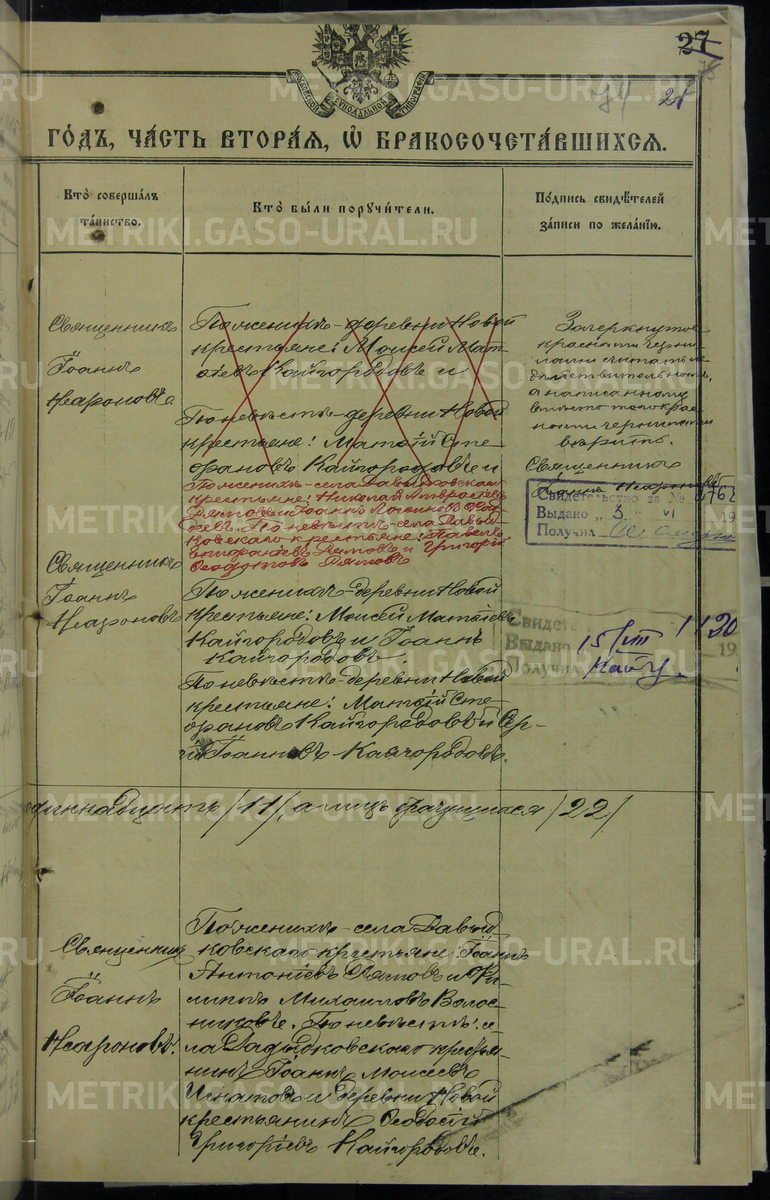 27
74
28
ГО́ДЪ, ЧА́СТЬ ВТОРА́Я, Ѡ҆ БРАКОСОЧЕТА́ВШИХСЯ.
Кто̀ совершáлъ
та́инство.
Кто̀ бы́ли поручи́тели.
По́дпись свидѣ́телей
за́писи по жела́нїю.
Священникъ
Іоаннъ
Неароновъ
По женихѣ - деревни Новой
крестьяне: Моисей Мат-
ѳіевъ Кайгородовъ и
По невѣстѣ - деревни Новой
крестьяне: Матѳій Сте-
фановъ Кайгородовъ и
По женихѣ - села Давыдковскаго
крестьяне: Николай
и Іоаннъ
По невѣстѣ - села Давыд-
ковскаго крестьяне: Павелъ
Пятовъ и Григорій
Ѳеодотовъ Пятовъ
Зачеркнутое
красными черни-
лами считать не
дѣйствительнымъ,
а написанному
вмѣсто того крас-
ными чернилами
вѣрить.
Священникъ
Іоаннъ Неароновъ
Свидетельство за №
Выдано
19
Получил
Священникъ
Іоаннъ
Неароновъ
По женихѣ - деревни Новой
крестьяне: Моисей Матѳіевъ
Кайгородовъ и Іоаннъ
Кайгородовъ.
По невѣстѣ - деревни Новой
крестьяне: Матѳій Сте-
фановъ Кайгородовъ и Сер-
гій Іоанновъ Кайгородовъ.
Свидет
Выдано 15/VIII 1130
19
Получил
одиннадцать /11/, а лицъ брачущихся /22/
Священникъ
Іоаннъ
Неароновъ.
По женихѣ - села Давыд-
ковскаго крестьяне: Іоаннъ
Антоніевъ Пятовъ и Фи-
липпъ Михаиловъ Волос-
никовъ. По невѣстѣ: се-
ла Давыдковскаго крестья-
нинъ Іоаннъ Моисеевъ
Игнатовъ и деревни Новой
крестьянинъ Ѳеодосій
Григоріевъ Кайгородовъ.
METRIKI.GASO-URAL.RU